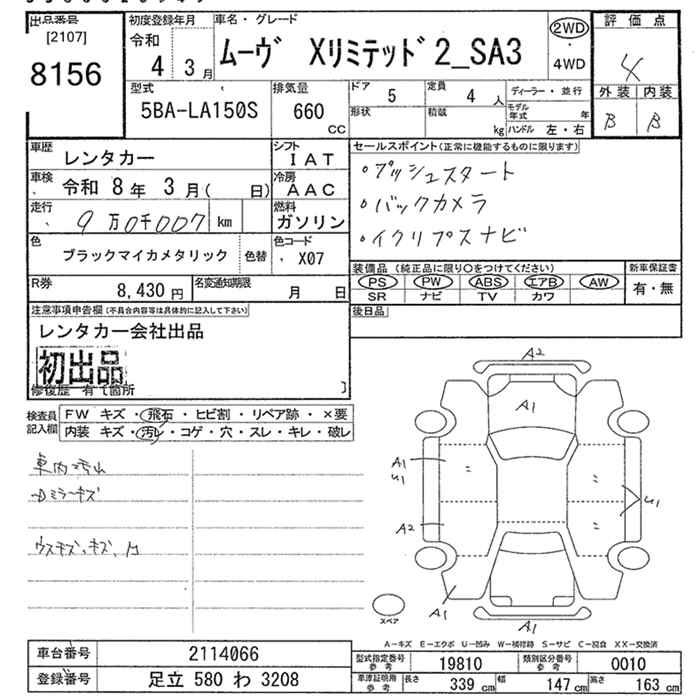 出品番号 [2107]
8156
初度登録年月
令和
4 3月
車名・グレード
ムーヴ Xリミテッド2_SA3
2WD
・
4WD
評価点
4
外装 内装
B B
型式
5BA-LA150S
排気量
660 CC
ドア 5
形状
定員 4 人
積載 kg
ディーラー・並行
モデル年式 年
ハンドル 左・右
車歴 レンタカー
シフト IAT
車検 令和 8年 3月( 日)
冷房 AAC
走行 9万0千007 km
燃料 ガソリン
色 ブラックマイカメタリック 色替
色コード X07
R券 8,430円
名変通知期限 月 日
セールスポイント(正常に機能するものに限ります)
・プッシュスタート
・バックカメラ
・イクリプスナビ
装備品 (純正品に限り〇をつけてください)
PS PW ABS エアB AW
SR ナビ TV カワ
新車保証書
有・無
後日品
注意事項申告欄(不具合内容等は具体的に記入して下さい)
レンタカー会社出品
初出品
修復歴 有〔箇所 〕
検査員記入欄
FW キズ・飛石・ヒビ割・リペア跡・×要
内装 キズ・汚レ・コゲ・穴・スレ・キレ・破レ
車内汚れ
ミラーキズ
ウスキズ、キズ、凹
A2
A1
A1
U1
A2
U1
A1
A1
スペア
A-キズ E-エクボ U-凹み W-補修跡 S-サビ C-腐食 XX-交換済
車台番号 2114066
登録番号 足立 580 わ 3208
型式指定番号 参考 19810
類別区分番号 参考 0010
車庫証明用 参考 長さ 339 cm 幅 147 cm 高さ 163 cm